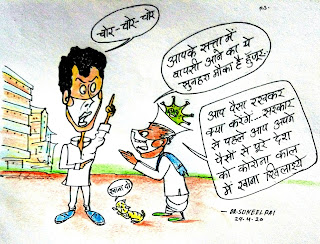 चोर-चोर-चोर
आपके सत्ता में
वापसी आने का ये
सुनहरा मौका है हुजूर.
आप पैसा रखकर
क्या करेंगे... सरकार
से पहले आप अपने
पैसों से पूरे देश
को कोरोना काल
में खाना खिलाइये
खाना दो
- DR. SUNEEL RAI
29-4-20